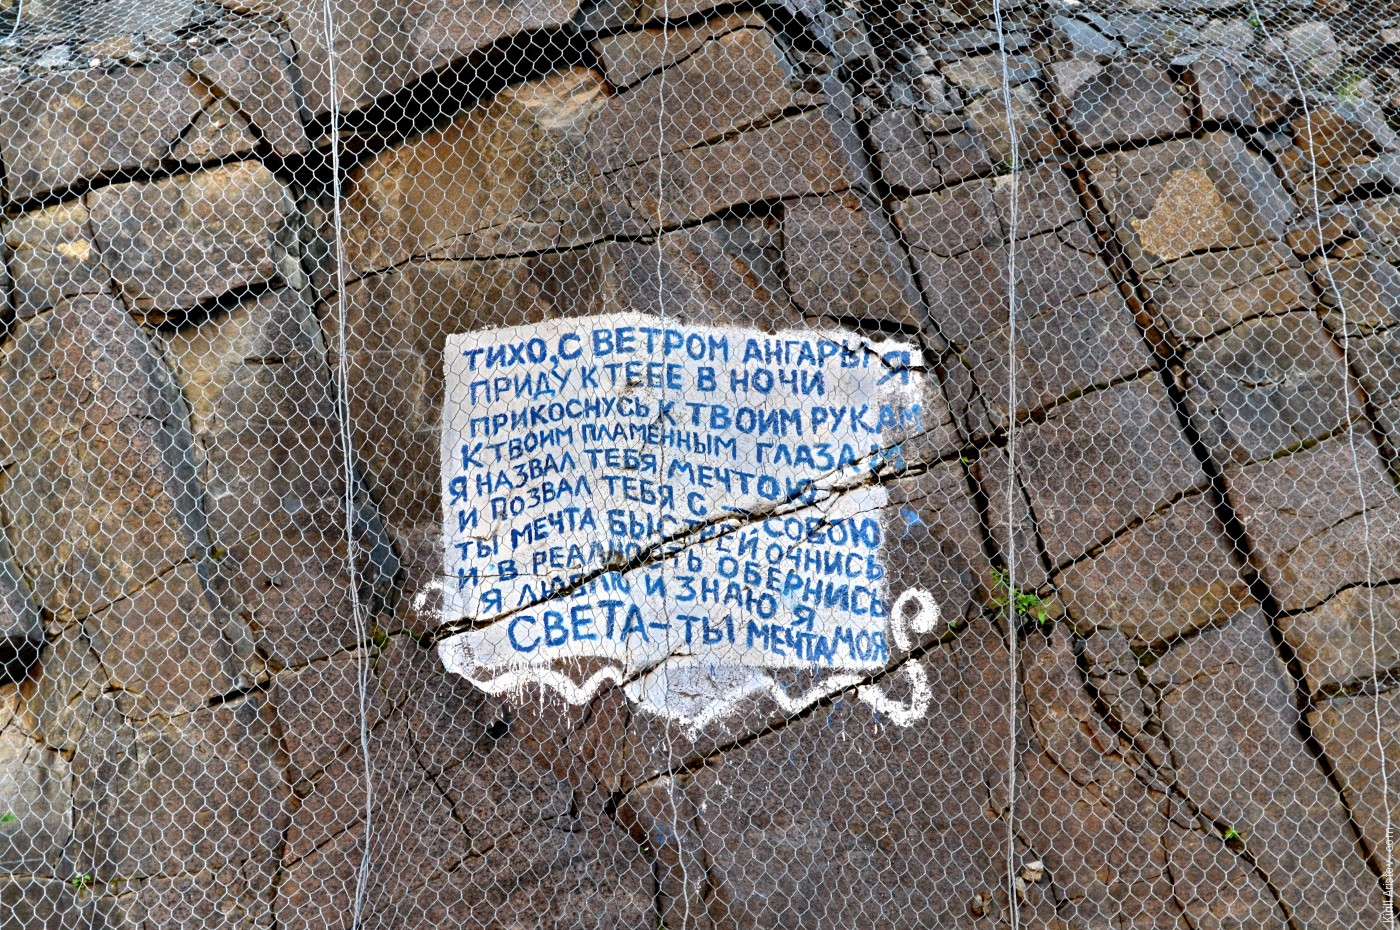 ТИХО, С ВЕТРОМ АНГАРЫ Я
ПРИДУ К ТЕБЕ В НОЧИ
ПРИКОСНУСЬ К ТВОИМ РУКАМ
К ТВОИМ ПЛАМЕННЫМ ГЛАЗАМ
Я НАЗВАЛ ТЕБЯ МЕЧТОЮ
И ПОЗВАЛ ТЕБЯ С СОБОЮ
ТЫ МЕЧТА БЫСТРЕЙ ОЧНИСЬ
И В РЕАЛЬНОСТЬ ОБЕРНИСЬ
Я ЛЮБЛЮ И ЗНАЮ Я
СВЕТА – ТЫ МЕЧТА МОЯ